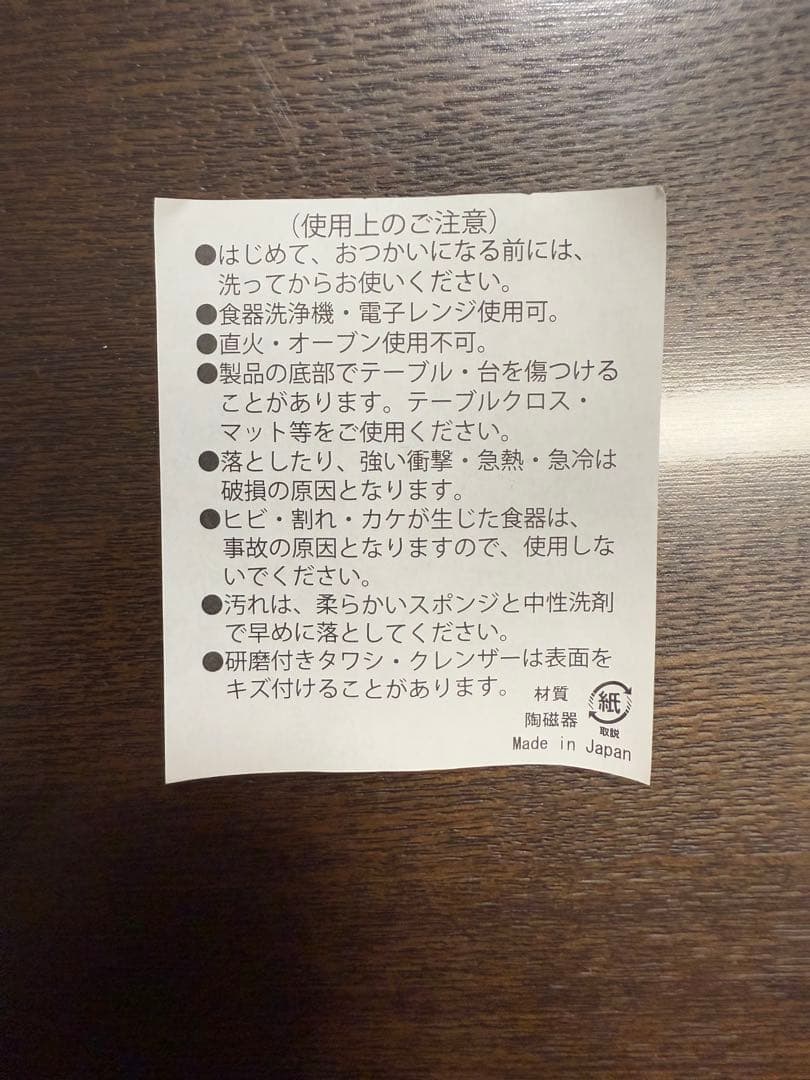 （使用上のご注意）
●はじめて、おつかいになる前には、
洗ってからお使いください。
●食器洗浄機・電子レンジ使用可。
●直火・オーブン使用不可。
●製品の底部でテーブル・台を傷つける
ことがあります。テーブルクロス・
マット等をご使用ください。
●落としたり、強い衝撃・急熱・急冷は
破損の原因となります。
●ヒビ・割れ・カケが生じた食器は、
事故の原因となりますので、使用しな
いでください。
●汚れは、柔らかいスポンジと中性洗剤
で早めに落としてください。
●研磨付きタワシ・クレンザーは表面を
キズ付けることがあります。
材質
陶磁器
紙
取説
Made in Japan